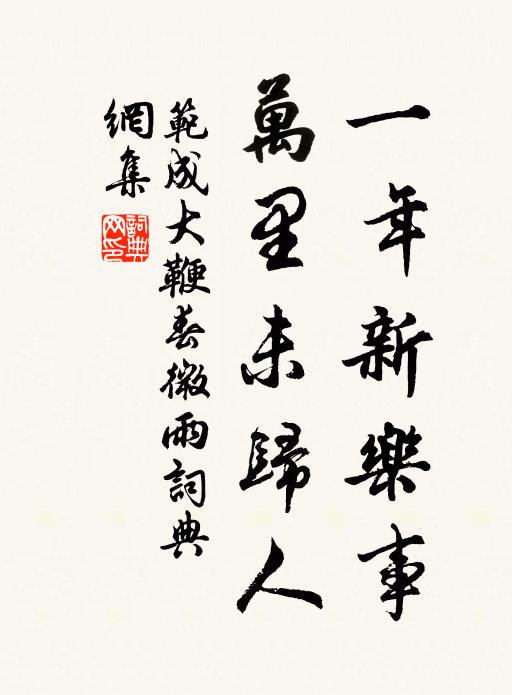 一年新樂事
萬里未歸人
範成大鞭春微雨詞典
網集
詞典網印